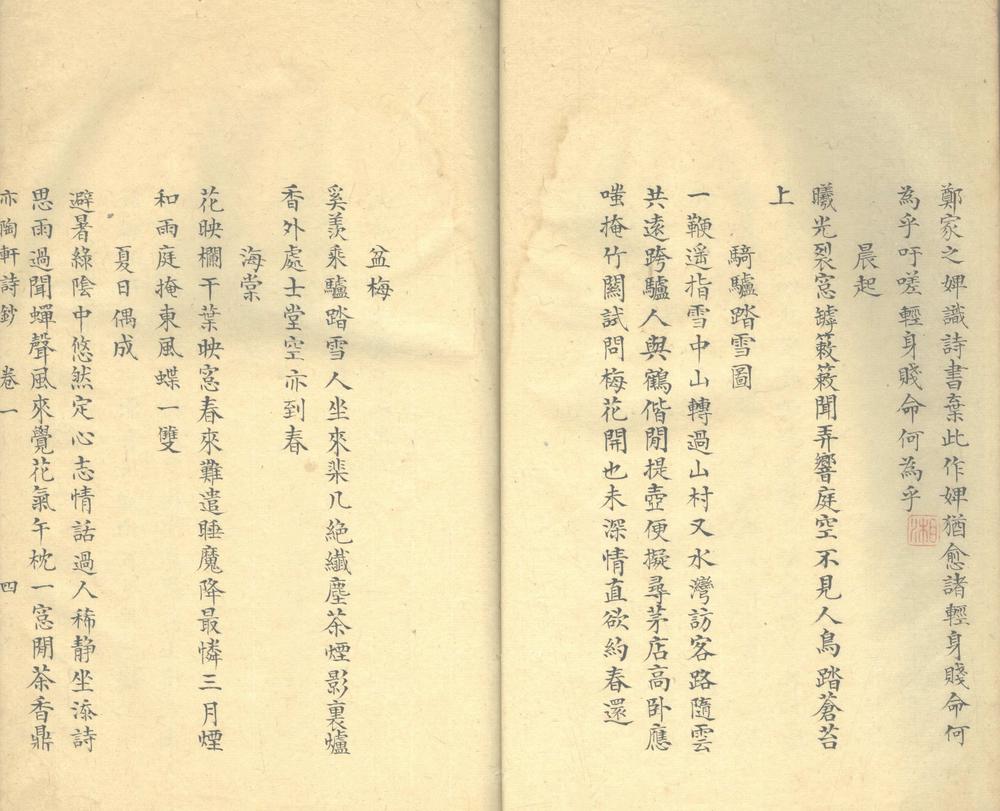 鄭家之婢識詩書棄此作婢猶愈諸輕身賤命何
為乎吁嗟輕身賤命何為乎
晨起
曦光裂窓罅簌簌聞弄響庭空不見人鳥踏蒼苔
上
騎驢踏雪圖
一鞭遥指雪中山轉過山村又水灣訪客路隨雲
共遠跨驢人與鶴偕閒提壺便擬尋茅店高卧應
嗤掩竹關試問梅花開也未深情直欲約春還
盆梅
奚羨乘驢踏雪人坐來棐几絶纖塵茶煙影裏爐
香外處士堂空亦到春
海棠
花映欄干葉映窓春來難遣睡魔降最憐三月煙
和雨庭掩東風蝶一雙
夏日偶成
避暑綠陰中悠然定心志情話過人稀静坐添詩
思雨過聞蟬聲風來覺花氣午枕一窓閒茶香鼎
亦陶軒詩鈔 卷一 四